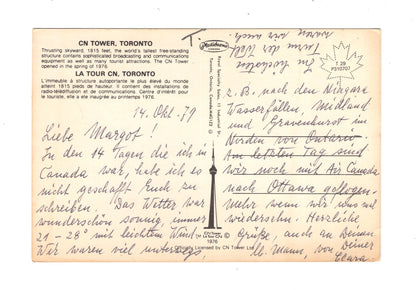 CN TOWER, TORONTO
Thrusting skyward, 1815 feet, the world's tallest free-standing
structure contains sophisticated broadcasting and communications
equipment as well as many tourist attractions. The CN Tower
opened in the spring of 1976.
LA TOUR CN, TORONTO
L'immeuble à structure autoportante le plus élevé du monde
atteint 1815 pieds de hauteur. Il contient des installations de
radio-télédiffusion et de communications. Centre d'intérêt pour
le touriste, elle a été inaugurée au printemps 1976.
14. Okt. 79
Liebe Margot!
In den 14 Tagen die ich in
Canada war, habe ich es
nicht geschafft Euch zu
schreiben. Das Wetter war
wunderschön sonnig, immer
21 – 28° mit leichtem Wind.
Wir waren viel unterwegs
z.B. nach den Niagara
Wasserfällen, Midland
und Gravenhurst im
Norden von Ontario.
Am letzten Tag sind
wir noch mit Air Canada
nach Ottawa geflogen.
mehr wenn wir uns mal
wiedersehn. Herzliche
Grüße, auch an Deinen
lb. Mann, von Deiner
Clara.
Im höchsten
Turm der Welt
waren wir auch
T 29
P310707
Plastichrome
Royal Specialty Sales, 11 Industrial St.,
Toronto, Ontario, Canada
1976
Officially Licensed by CN Tower Ltd.